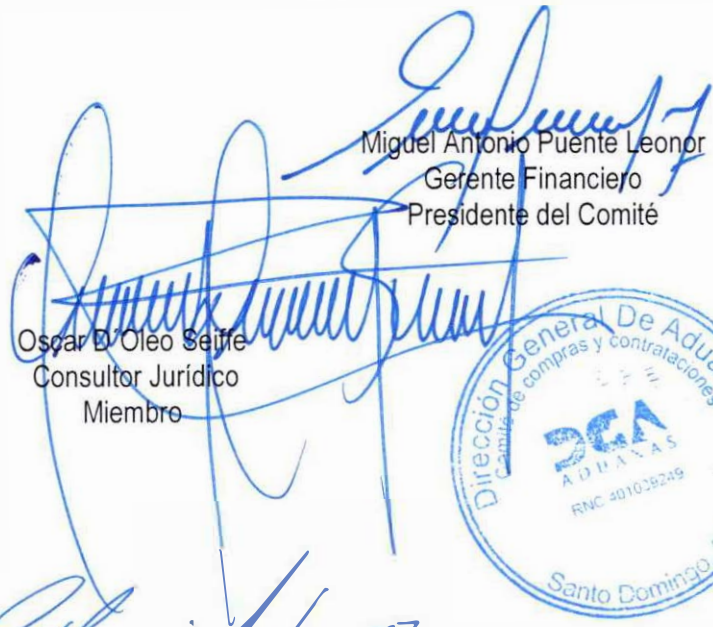 Miguel Antonio Puente Leonor
Gerente Financiero
Presidente del Comité
Oscar D'Oleo Seiffe
Consultor Jurídico
Miembro
Dirección General De
Comité de compras y contrataciones
DGA
ADUANAS
Santo Domingo